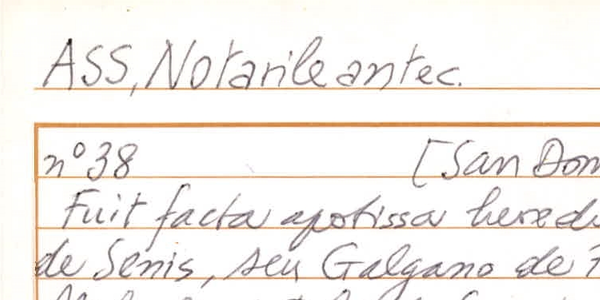 ASS, Notarile antec.
nº 38 [San Dom
Fuit facta apotissa hered
de Senis, seu Galgano de